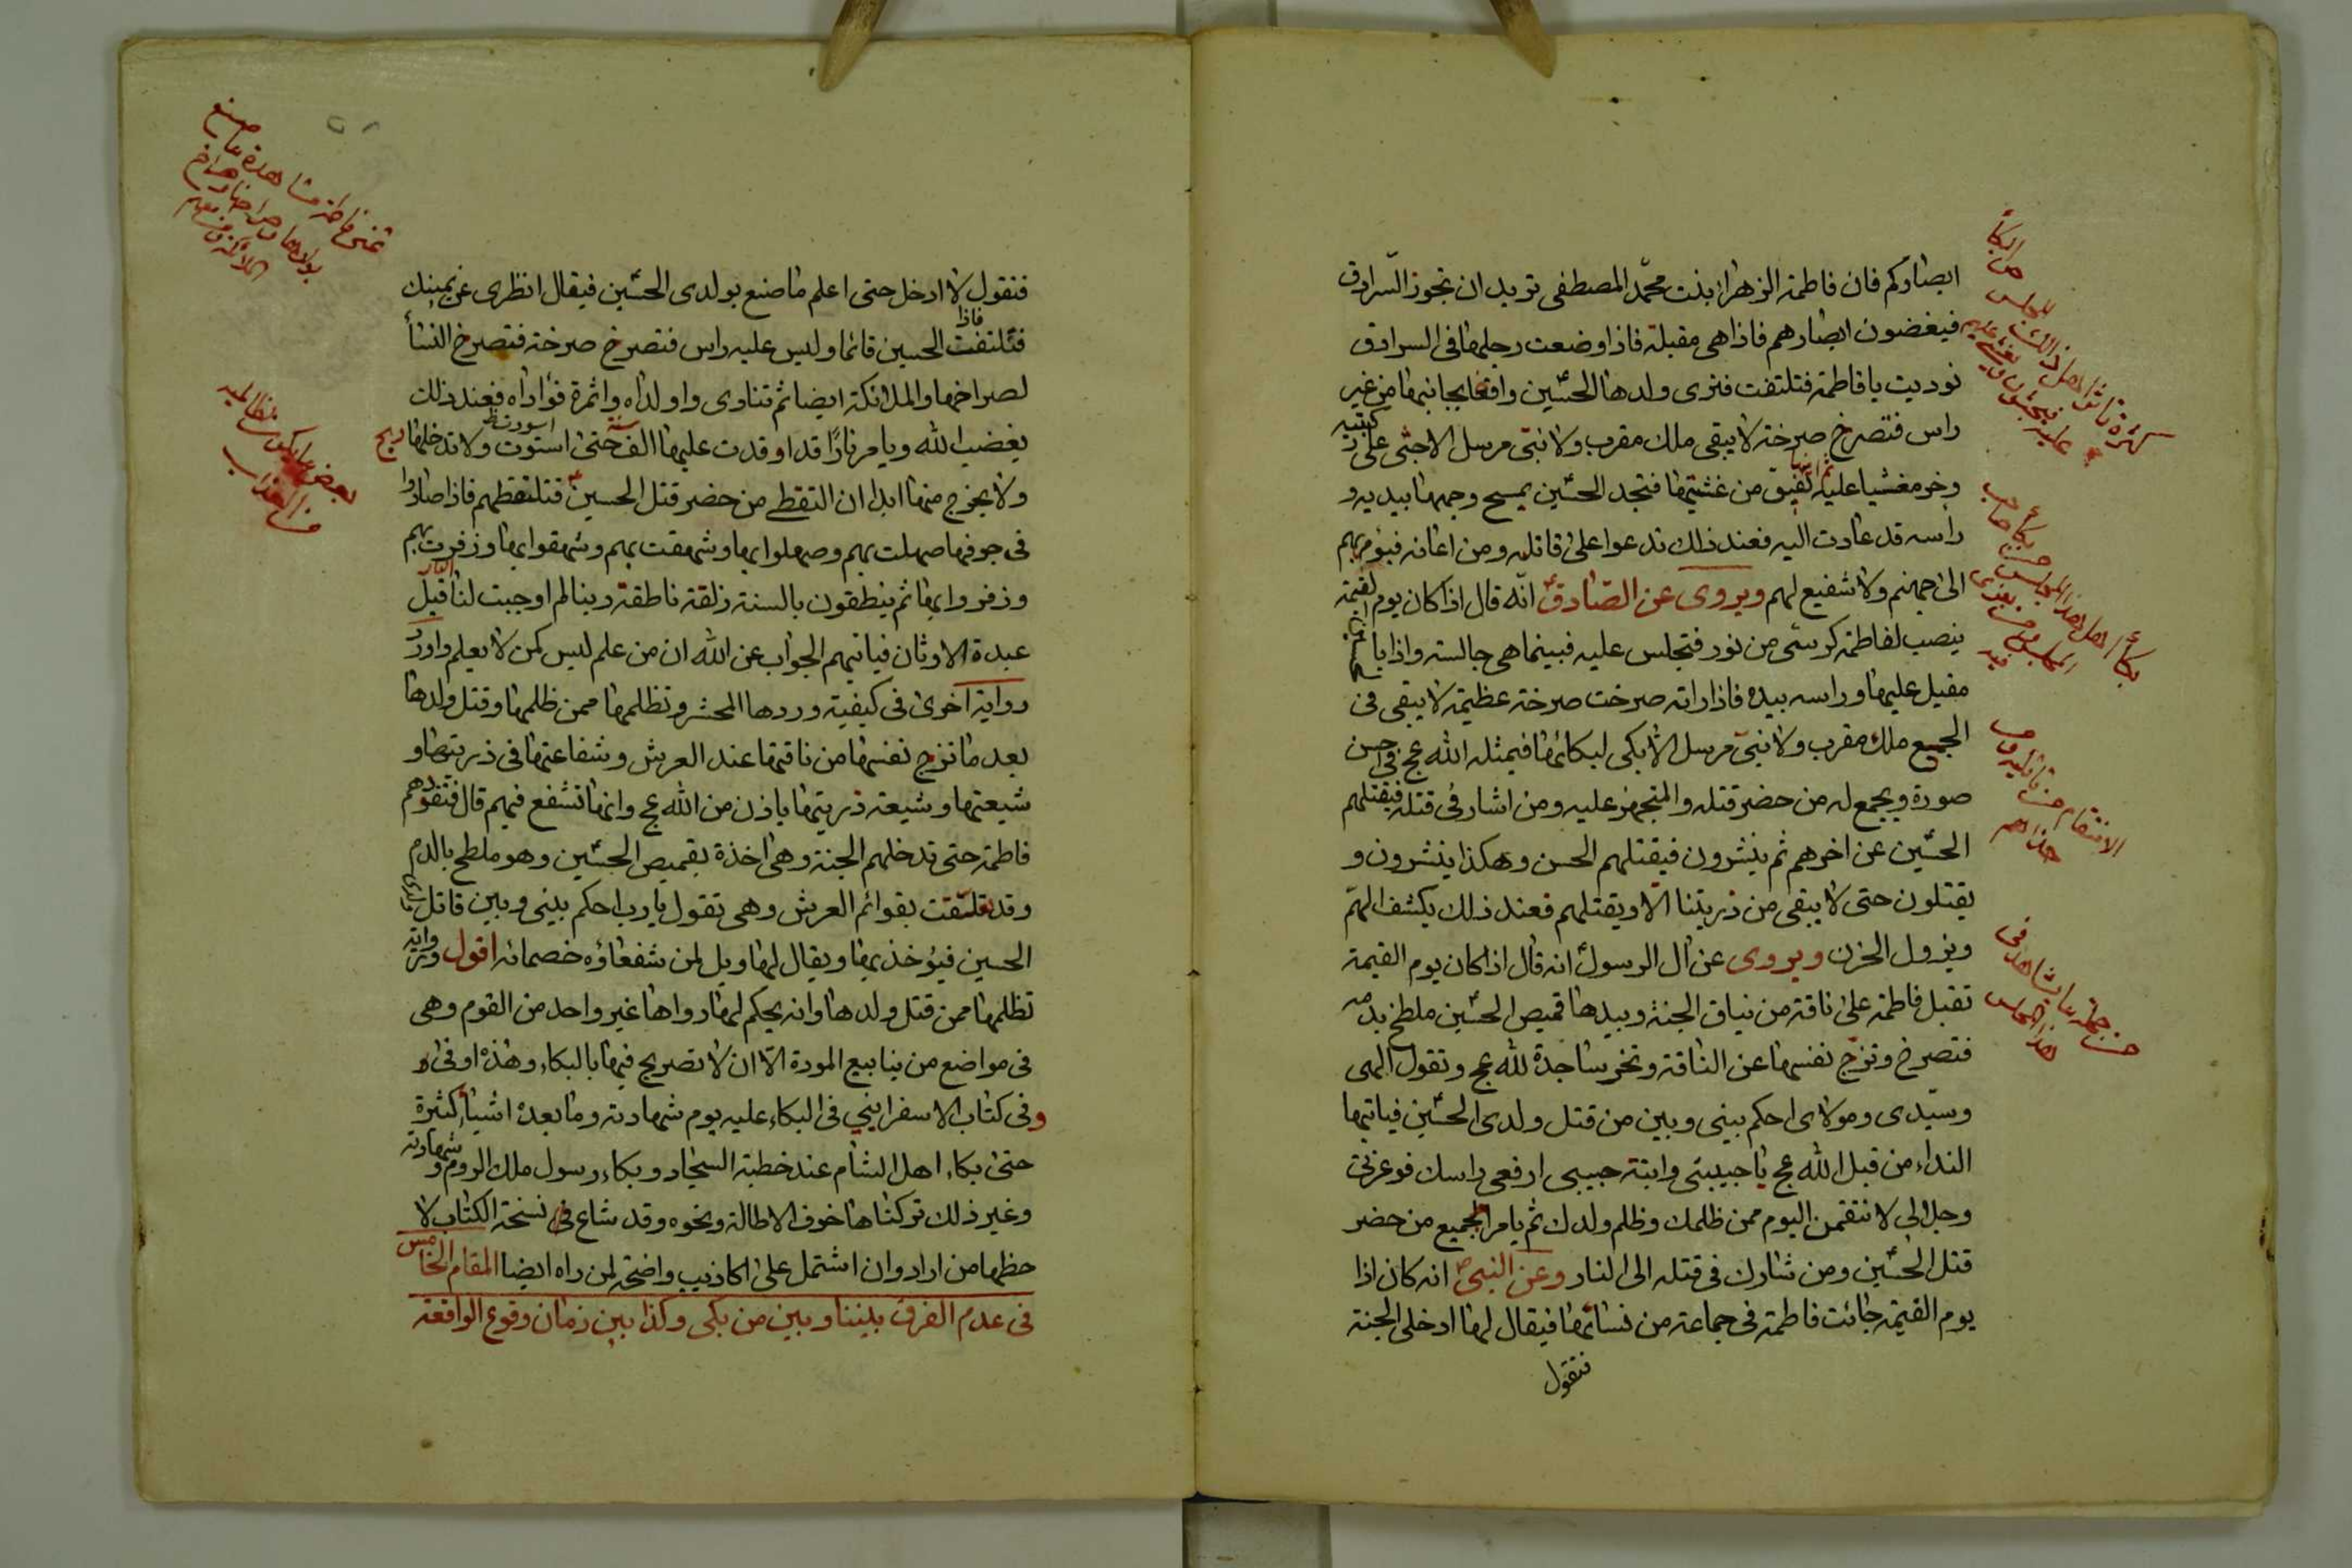 ابصاركم فان فاطمة الزهراء بنت محمّد المصطفى تريد ان تجوز السّرادق
فيغضون ابصارهم فاذا هى مقبلة فاذا وضعت رجلها فى السرادق
نوديت يا فاطمة فتلتفت فترى ولدها الحسين واقفا بجانبها من غير
راس فتصرخ صرخة لا يبقى ملك مقرب ولا نبىّ مرسل الا جثى على ركبتيه
وخر مغشيا عليه ثم انها تفيق من غشيتها فتجد الحسين يمسح وجهها بيديه و
راسه قد عادت اليه فعند ذلك تدعوا على قاتله ومن اعانه فيؤمر بهم
الى جهنم ولا شفيع لهم ويروى عن الصّادق انّه قال اذا كان يوم القيمة
ينصب لفاطمة كرسى من نور فتجلس عليه فبينما هى جالسة واذا بالحسين
مقبل عليها وراسه بيده فاذا راته صرخت صرخة عظيمة لا يبقى فى
الجميع ملك مقرب ولا نبىّ مرسل الّا بكى لبكائها فيمثله الله عج فى احسن
صورة ويجمع له من حضر قتله والمتجهز عليه ومن اشار فى قتله فيقتلهم
الحسين عن اخرهم ثم ينشرون فيقتلهم الحسن وهكذا ينشرون و
يقتلون حتى لا يبقى من ذريتنا الّا ويقتلهم فعند ذلك يكشف الهمّ
ويزول الحزن ويروى عن ال الرسول انه قال اذا كان يوم القيمة
تقبل فاطمة على ناقة من نياق الجنة وبيدها قميص الحسين ملطخ بدمه
فتصرخ وتزجّ نفسها عن الناقة وتخر ساجدة لله عج وتقول الهى
وسيّدى ومولاى احكم بينى وبين من قتل ولدى الحسين فياتيها
النداء من قبل الله عج يا حبيبتى وابنة حبيبى ارفعى راسك فوعزتى
وجلالى لانتقمن اليوم ممن ظلمك وظلم ولدك ثم يامر الجميع من حضر
قتل الحسين ومن شارك فى قتله الى النار وعن النبى ص انه كان اذا
يوم القيمة جائت فاطمة فى جماعة من نسائها فيقال لها ادخلى الجنة
فتقول
بكاء اهل هذا المجلس
الانتقام من قاتليه
فتقول لا ادخل حتى اعلم ما صنع بولدى الحسين فيقال انظرى عن يمينك
فتلتفت فاذا الحسين قائما وليس عليه راس فتصرخ صرخة فتصرخ النسأ
لصراخها والملائكة ايضا ثم تنادى واولداه واثمرة فؤاداه فعند ذلك
يغضب الله ويامر نارًا قد اوقدت عليها الف سنة حتى اسودت ولا تدخلها ريح
ولا يخرج منها ابدا ان التقطى من حضر قتل الحسين فتلتقطهم فاذا صاروا
فى جوفها صهلت بهم وصهلوا بها وشهقت بهم وشهقوا بها وزفرت بهم
وزفروا بها ثم ينطقون بالسنة زلقة ناطقة ربنا لم اوجبت لنا النار قبل
عبدة الاوثان فياتيهم الجواب عن الله ان من علم ليس كمن لا يعلم واورد
رواية اخرى فى كيفية ورودها المحشر وتظلمها ممن ظلمها وقتل ولدها
بعد ما تزج نفسها من ناقتها عند العرش وشفاعتها فى ذريتها و
شيعتها وشيعة ذريتها باذن من الله عج وانها تشفع فيهم قال فتقودهم
فاطمة حتى تدخلهم الجنة وهى اخذة بقميص الحسين وهو ملطخ بالدم
وقد تعلّقت بقوائم العرش وهى تقول يا رب احكم بينى وبين قاتل ولدى
الحسين فيؤخذ بها ويقال لها ويل لمن شفعاؤه خصمائه اقول ورواية
تظلمها ممن قتل ولدها وانه يحكم لها رواها غير واحد من القوم وهى
فى مواضع من ينابيع المودة الّا ان لا تصريح فيها بالبكاء وهذه اوفى
وفى كتاب الاسفراينى فى البكاء عليه يوم شهادته وما بعده اشيأ كثيرة
حتى بكاء اهل الشام عند خطبة السجاد وبكاء رسول ملك الروم وشهادته
وغير ذلك تركناها خوف الاطالة ونحوه وقد شاع فى نسخة الكتاب لا
حظها من اراد وان اشتمل على اكاذيب واضحة لمن راه ايضا المقام الخامس
فى عدم الفرق بيننا وبين من بكى وكذا بين زمان وقوع الواقعة